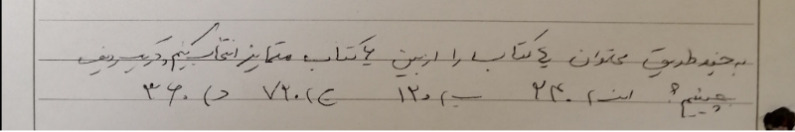 به چند طریق می‌توان ۴ کتاب را از بین ۶ کتاب متمایز انتخاب کنیم و در یک ردیف
بچینیم؟ الف) ۲۴۰ ب) ۱۲۰ ج) ۷۲۰ د) ۳۶۰